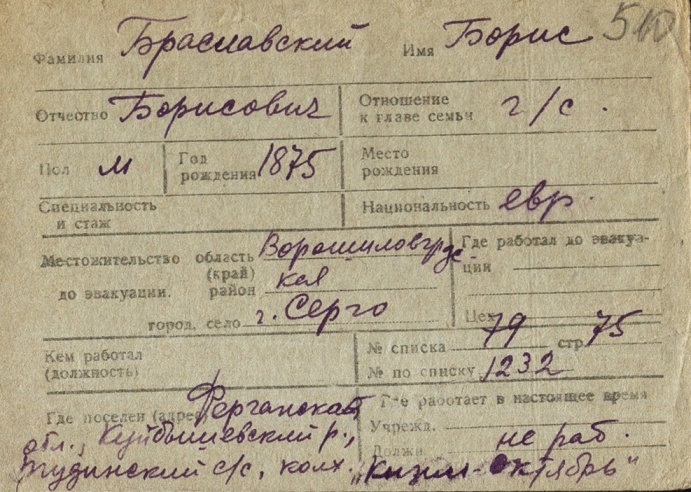 510
Фамилия Браславский Имя Борис
Отчество Борисович Отношение к главе семьи г/с.
Пол м Год рождения 1875 Место рождения
Специальность и стаж Национальность евр.
Местожительство область Ворошиловградс Где работал до эвакуа-
(край) кая ции
до эвакуации. район
город, село г. Серго Цех
Кем работал № списка 79 стр. 75
(должность) № по списку 1232
Где поселен (адрес) Ферганская Где работает в настоящее время
обл., Куйбышевский р., Учрежд.
с/с, колх. „Кизил-Октябрь" Должн. не раб.